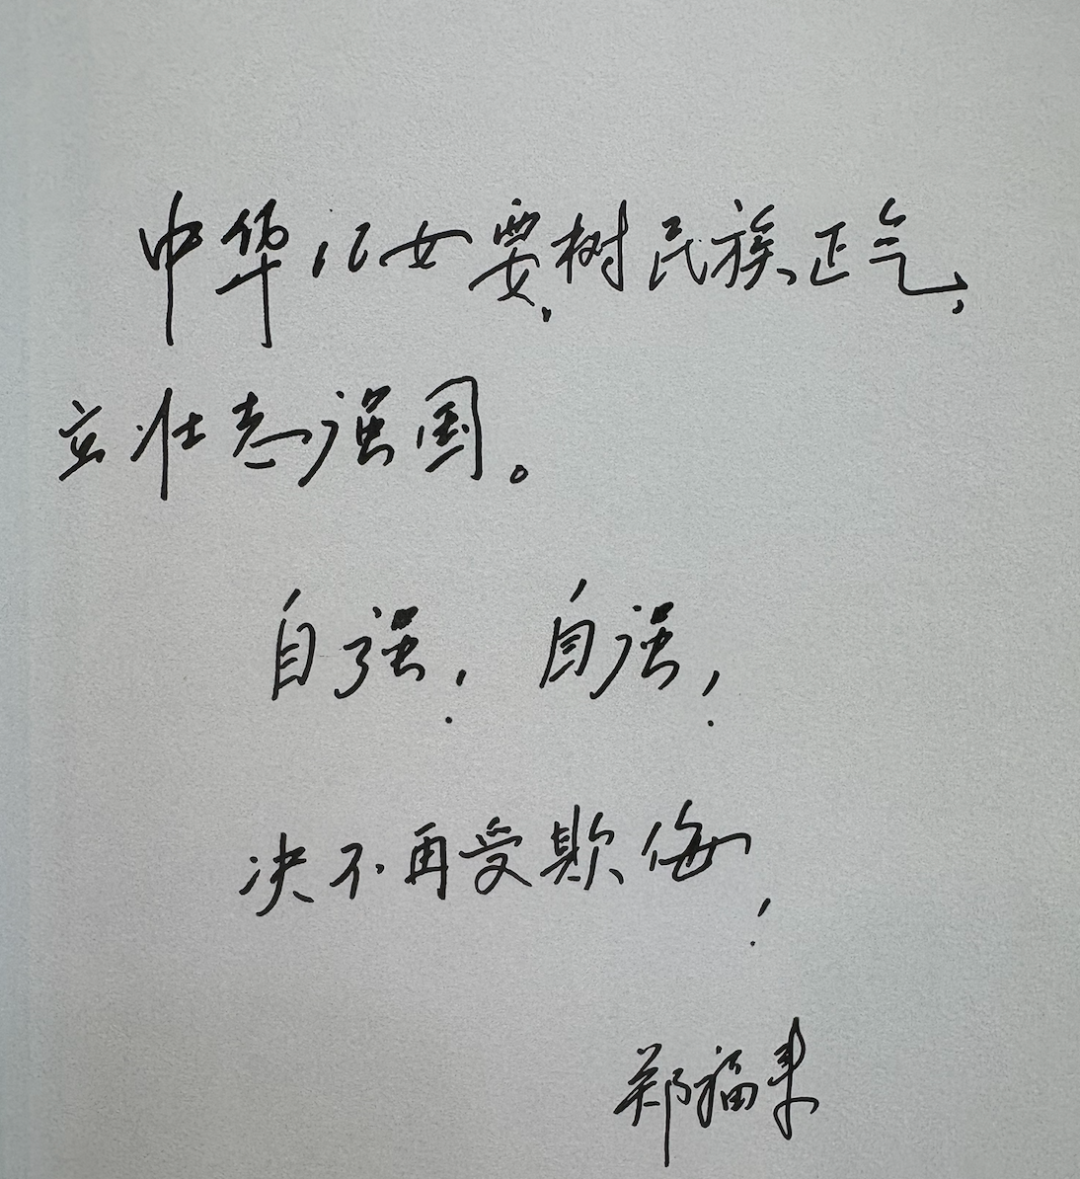 中华儿女要树民族正气,
立壮志强国。
自强! 自强!
决不再受欺侮!
郑福来